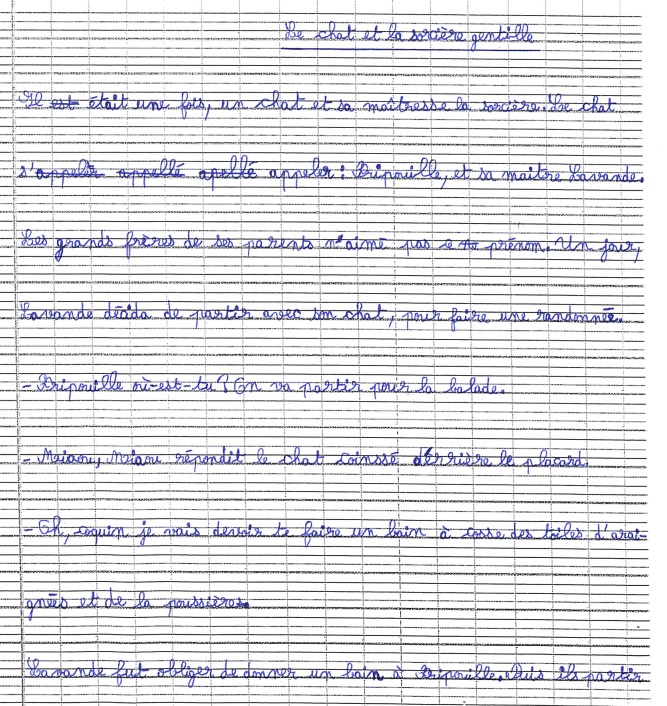 Le chat et la sorcière gentille
Il est était une fois, un chat et sa maîtresse la sorcière. Le chat
s'appeler appellé apellé appeler : Fripouille, et sa maitre Lavande.
Les grands frères de ses parents n'aimé pas ce prénom. Un jour,
Lavande décida de partir avec son chat, pour faire une randonnée.
- Fripouille où-est-tu ? On va partir pour la balade.
- Miaou, Miaou répondit le chat coinssé dérrière le placard.
- Oh, coquin je vais devoir te faire un bain à cosse des toiles d'arai-
gnées et de la poussières.
Lavande fut obliger de donner un bain à Fripouille. Puis ils partir